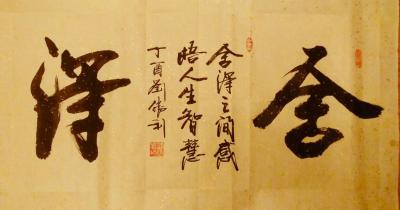 舍
舍得之间感
悟人生智慧
丁酉刘伟利
得